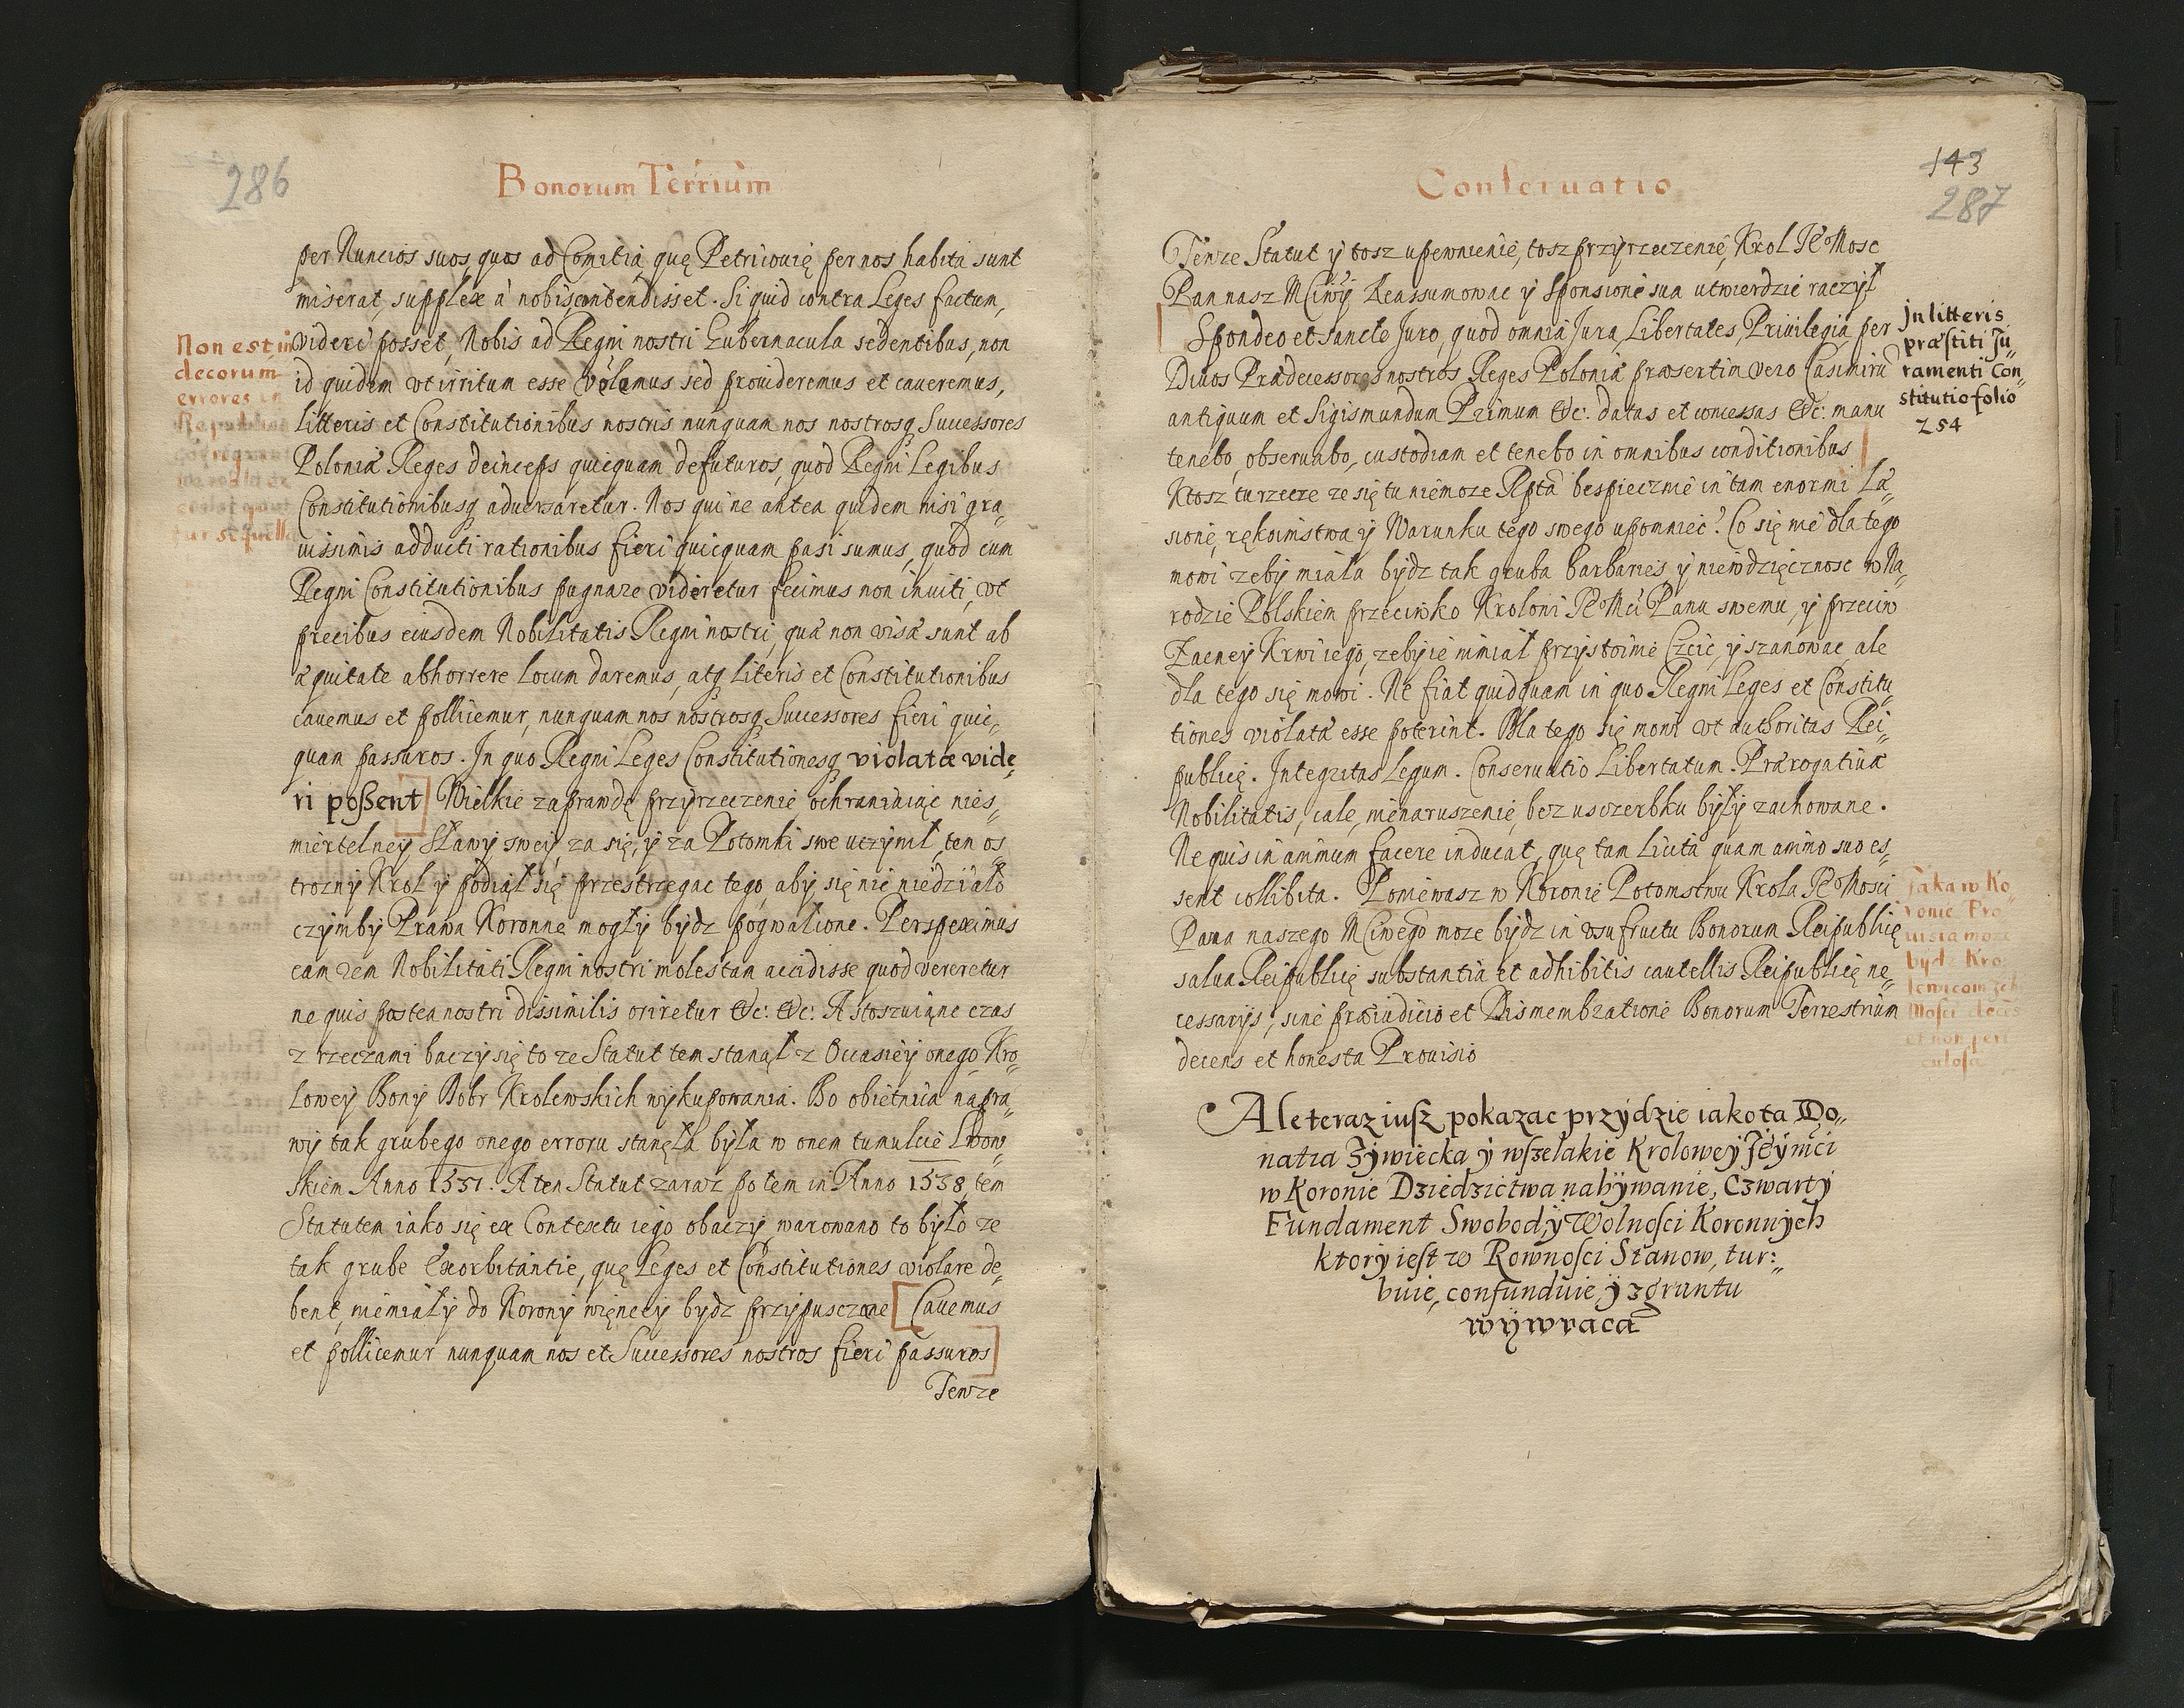 286
Bonorum Terrium
per Nuncios suos quos ad Comitia, quę Petricouię per nos habita sunt
miserat, supplex à nobis contendisset. Si quid contra Leges factum,
videri posset, Nobis ad Regni nostri Gubernacula sedentibus, non
id quidem vt irritum esse volemus sed prouideremus et caueremus,
litteris et Constitutionibus nostris nunquam nos nostrosq Successores
Poloniæ Reges deinceps quicquam defuturos, quod Regni Legibus
Constitutionibusq aduersaretur. Nos qui ne antea quidem nisi gra„
uissimis adducti rationibus fieri quicquam pasi sumus, quod cum
Regni Constitutionibus pugnare videretur fecimus non inuiti, vt
precibus eiusdem Nobilitatis Regni nostri, quæ non visæ sunt ab
æquitate abhorrere locum daremus, atq literis et Constitutionibus
cauemus et pollicemur, nunquam nos nostrosq Successores fieri quic„
quam passuros. In quo Regni Leges Constitutionesq violatæ vide„
ri poßent] Wielkie zaprawdę przyrzeczenie ochraniaiąc nies„
miertelney Sławy swey, za się, y za Potomki swe uczynił, ten os„
trozny Krol y podiął się przestrzegac tego, aby się nic niedziało
czymby Prawa Koronne mogły bydz pogwałcone. Perspeximus
eam rem Nobilitati Regni nostri molestam accidisse quod vereretur
ne quis postea nostri dissimilis oriretur &c: &c: A stoszuiąc czas
z rzeczami baczy się to ze Statut tem stanął z Occasiey onego Kro„
lowey Bony Dobr Krolewskich wykupowania. Bo obietnica napra„
wy tak grubego onego erroru stanęła była w onem tumulcie Lwow„
skiem Anno 1537. A ten Statut zaraz po tem in Anno 1538, tem
Statutem iako się ex Contextu iego obaczy, warowano to było ze
tak grube Exorbitantie, quę Leges et Constitutiones violare de„
bent, niemiały do Korony więnecy bydz przypusczone [Cauemus
et pollicemur nunquam nos et Successores nostros fieri passuros]
Tenze
Non est in
decorum
errores in
143
287
Conseruatio
Tenze Statut y tosz upewnienie, tosz przyrzeczenie, Krol JE Mosc
Pan nasz MCiwy Reassumowac y Sponsione sua utwierdzic raczył
[Spondeo et sancte Juro, quod omnia Jura, Libertates, Priuilegia, per
Diuos Prædecessores nostros Reges Poloniæ præsertim vero Casimirū
antiquum et Sigismundum Primum &c: datas et concessas &c: manu
tenebo, obseruabo, custodiam et tenebo in omnibus conditionibus]
Ktosz tu rzecze ze się tu niemoze Rpta bespiecznie in tam enormi Læ„
sione, rękoimstwa y Warunku tego swego upomniec? Co się nie dla tego
mowi zeby miała bydz tak gruba barbaries, y niewdzięcznosc w Na„
rodzie Polskiem przeciwko Krolowi JE Mci Panu swemu, y przeciw
Zacney Krwi iego, zebyie nimiał przystoinie Czcic, y szanowac, ale
dla tego się mowi. Ne fiat quidquam in quo Regni Leges et Constitu„
tiones violatæ esse poterint. Dla tego się mowi vt authoritas Rei„
publicę. Integritas Legum. Conseruatio Libertatum. Prærogatiuæ
Nobilitatis, cale, nienaruszenie, bez usczerbku były zachowane.
Ne quis in animum facere inducat, quę tam licita quam animo suo es„
sent collibita. Poniewasz w Koronie Potomstwu Krola JE Mosci
Pana naszego MCiwego moze bydz in vsufructu Bonorum Reipublicę
salua Reipublicę substantia et adhibitis cautellis Reipublicę ne„
cessarijs, sine præiudicio et Dismembratione Bonorum Terrestrium
decens et honesta Prouisio
In litteris
præstiti Ju„
ramenti Con„
stitutio folio
254
Jaka w Ko
ronie Pro
uisia moze
bydz Kro
lewicom
Mosci decēs
et non peri
culosa
Ale teraz iusz pokazac przydzie iako ta Do„
natia Zywiecka y wszelakie Krolowey JEymci
w Koronie Dziedzictwa nabywanie, Czwarty
Fundament Swobod, y Wolnosci Koronnych
ktory iest w Rownosci Stanow, tur:„
buie, confunduie, y zgruntu
wywraca